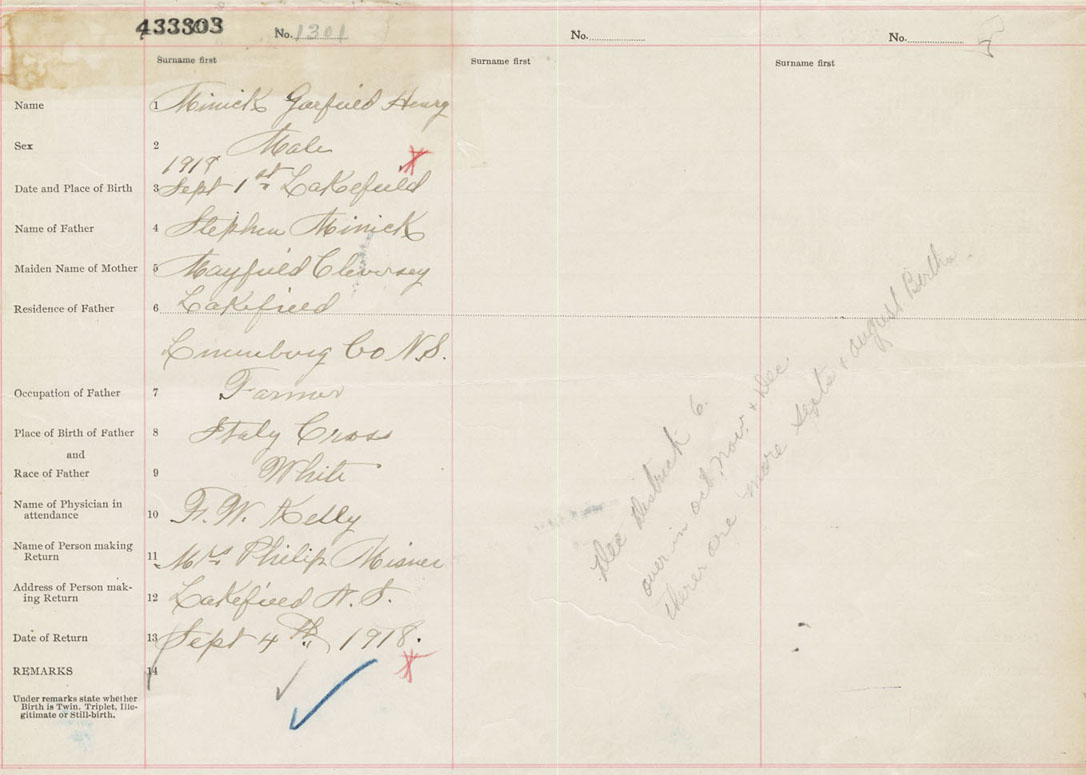 433303 No. 1301 No. No.
Surname first Surname first Surname first
Name 1 Minick Garfield Henry
Sex 2 Male
1918
Date and Place of Birth 3 Sept 1st Lakefield
Name of Father 4 Stephen Minick
Maiden Name of Mother 5 Mayfield
Residence of Father 6 Lakefield
Lunenburg Co N.S.
Occupation of Father 7 Farmer
Place of Birth of Father 8 Italy Cross
and
Race of Father 9 White
Name of Physician in
attendance 10 F. W. Kelly
Name of Person making
Return 11 Mrs Philip Misner
Address of Person mak-
ing Return 12 Lakefield N. S.
Date of Return 13 Sept 4th, 1918.
REMARKS 14
Under remarks state whether
Birth is Twin, Triplet, Ille-
gitimate or Still-birth.
Dec District 6.
over in oct, nov. + Dec
there are more Septs + august Births.